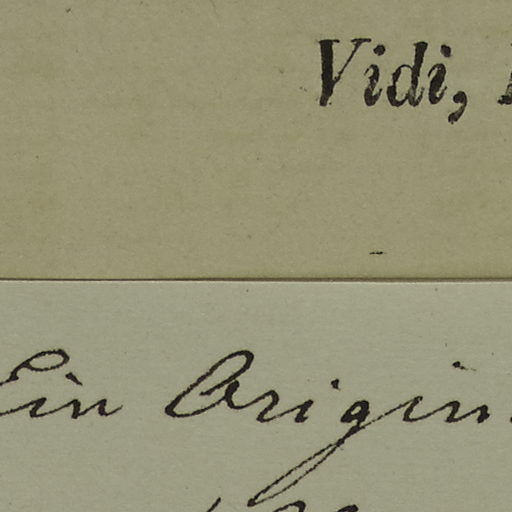 Vidi,
Ein Origin